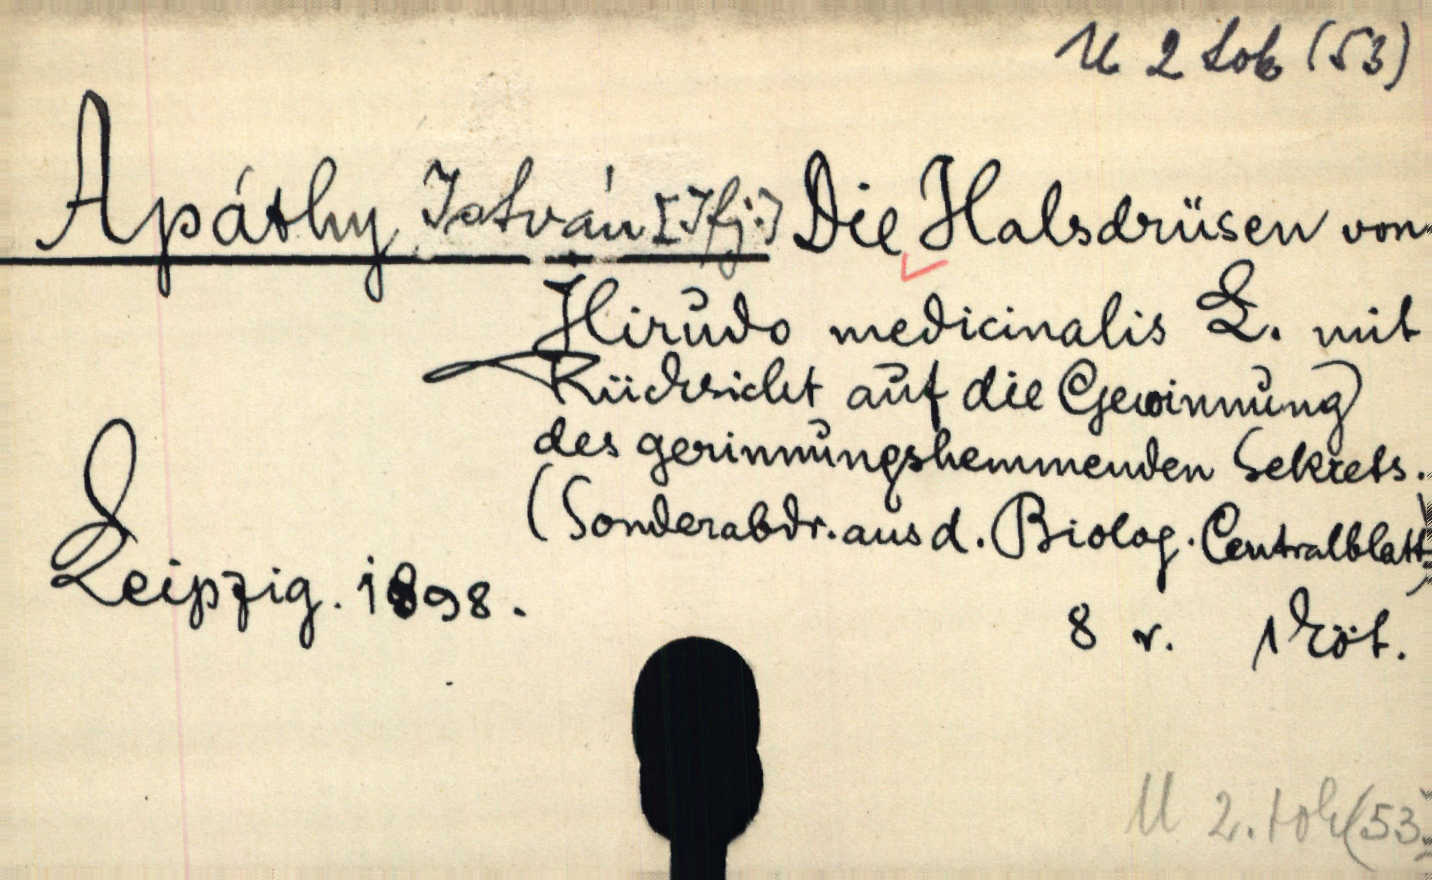 U 2 tok (53)
Apáthy István [Ifj.] Die Halsdrüsen von
Hirudo medicinalis L. mit
Rücksicht auf die Gewinnung
des gerinnungshemmenden Sekrets.
(Sonderabdr. aus d. Biolog. Centralblatt)
Leipzig. 1898.
8 r. 1 köt.
U 2. tok (53)